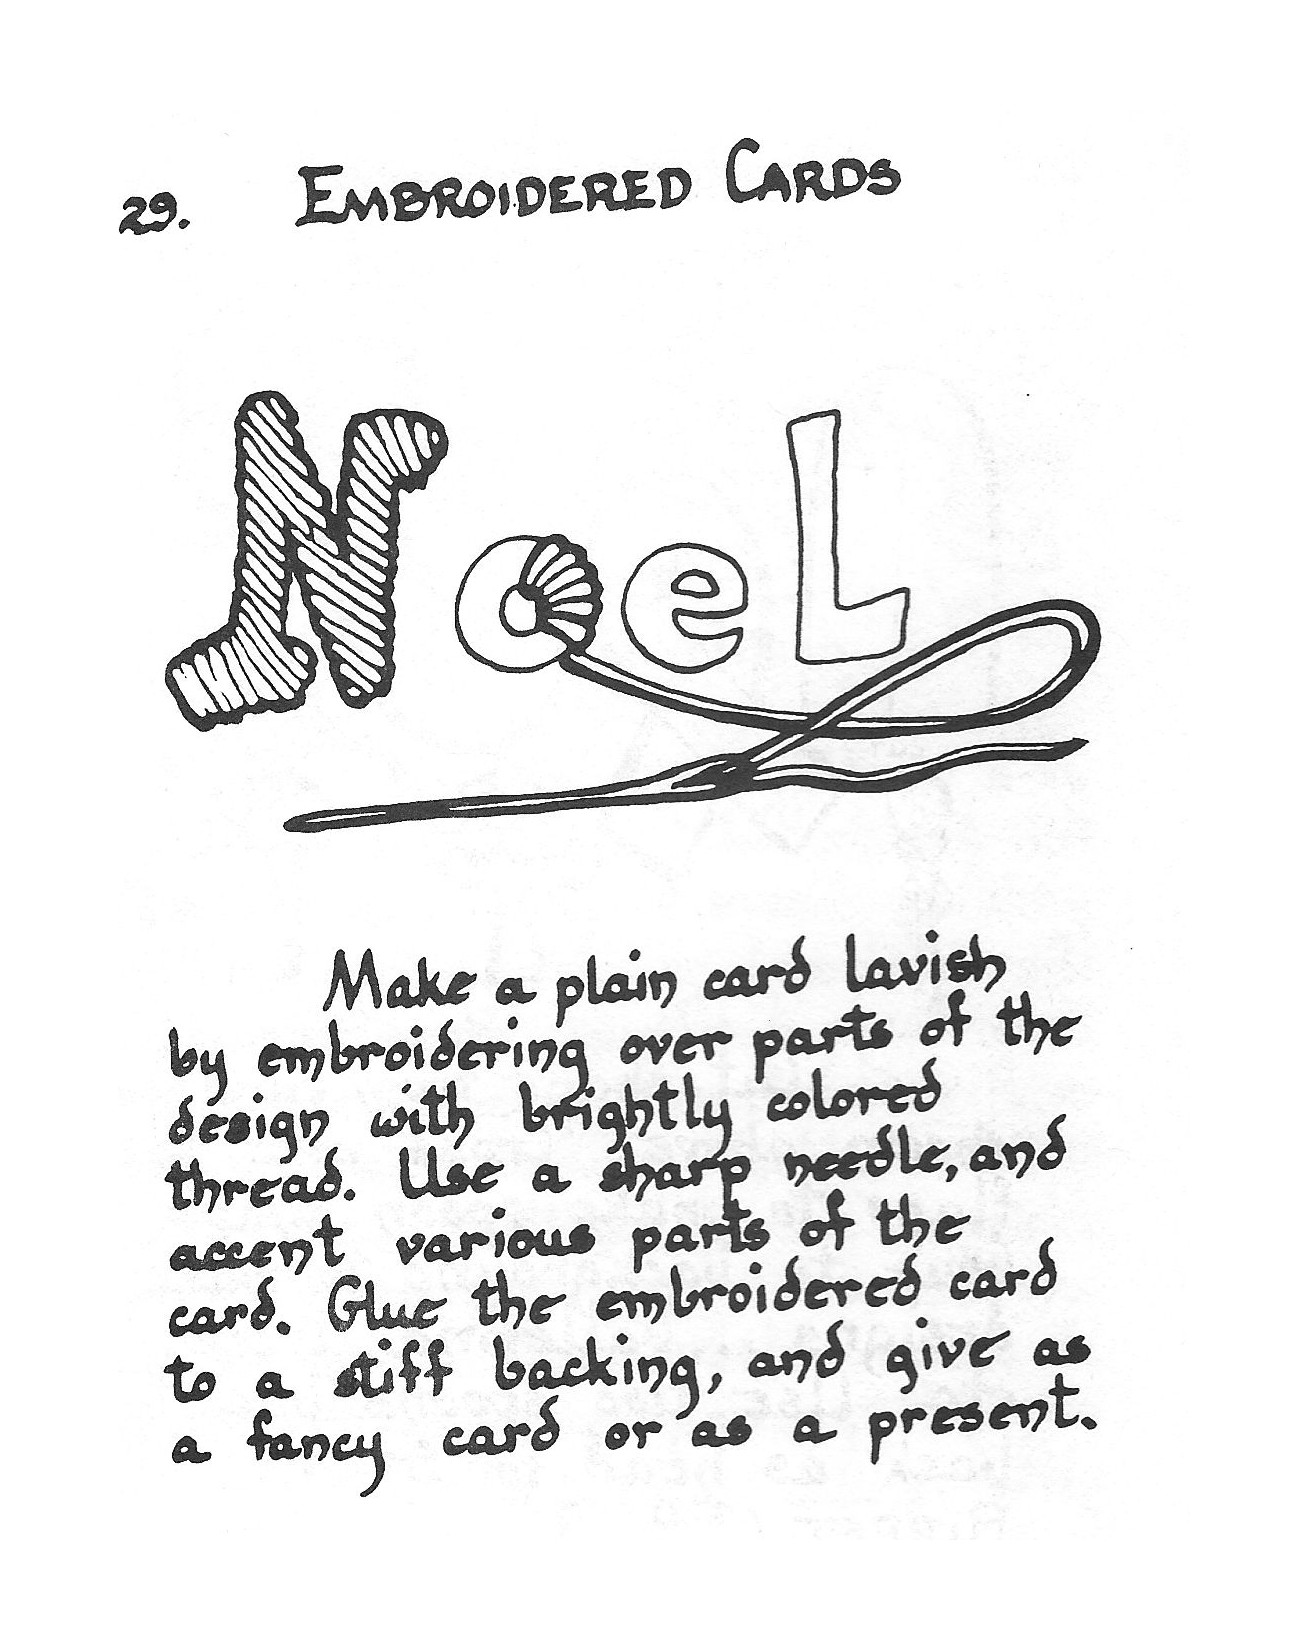 29. EMBROIDERED CARDS
NoeL
Make a plain card lavish
by embroidering over parts of the
design with brightly colored
thread. Use a sharp needle, and
accent various parts of the
card. Glue the embroidered card
to a stiff backing, and give as
a fancy card or as a present.